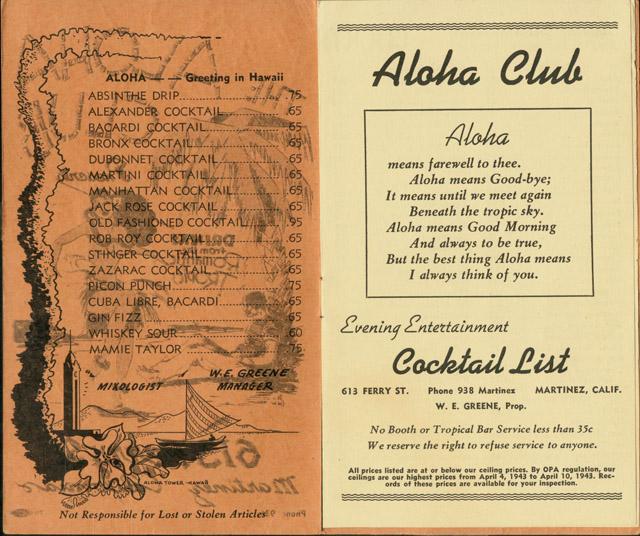 ALOHA — — Greeting in Hawaii
ABSINTHE DRIP .75
ALEXANDER COCKTAIL .65
BACARDI COCKTAIL .65
BRONX COCKTAIL .65
DUBONNET COCKTAIL .65
MARTINI COCKTAIL .65
MANHATTAN COCKTAIL .65
JACK ROSE COCKTAIL .65
OLD FASHIONED COCKTAIL .95
ROB ROY COCKTAIL .65
STINGER COCKTAIL .65
ZAZARAC COCKTAIL .65
PICON PUNCH .75
CUBA LIBRE, BACARDI .65
GIN FIZZ .65
WHISKEY SOUR .60
MAMIE TAYLOR .75
MIXOLOGIST
W. E. GREENE
MANAGER
ALOHA TOWER - HAWAII
Not Responsible for Lost or Stolen Articles
Aloha Club
Aloha
means farewell to thee.
Aloha means Good-bye;
It means until we meet again
Beneath the tropic sky.
Aloha means Good Morning
And always to be true,
But the best thing Aloha means
I always think of you.
Evening Entertainment
Cocktail List
613 FERRY ST. Phone 938 Martinez MARTINEZ, CALIF.
W. E. GREENE, Prop.
No Booth or Tropical Bar Service less than 35c
We reserve the right to refuse service to anyone.
All prices listed are at or below our ceiling prices. By OPA regulation, our
ceilings are our highest prices from April 4, 1943 to April 10, 1943. Rec-
ords of these prices are available for your inspection.